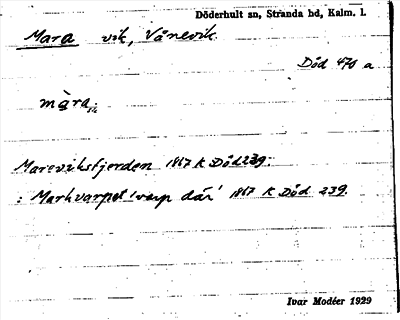 Döderhult sn, Stranda hd, Kalm. l.
Mara vik, Vånevik
Död 470 a
màra
Marsviksfjerden 1867 K Död 239.
: Markvarpet 'varp där' 1867 K Död 239.
Ivar Modéer 1929